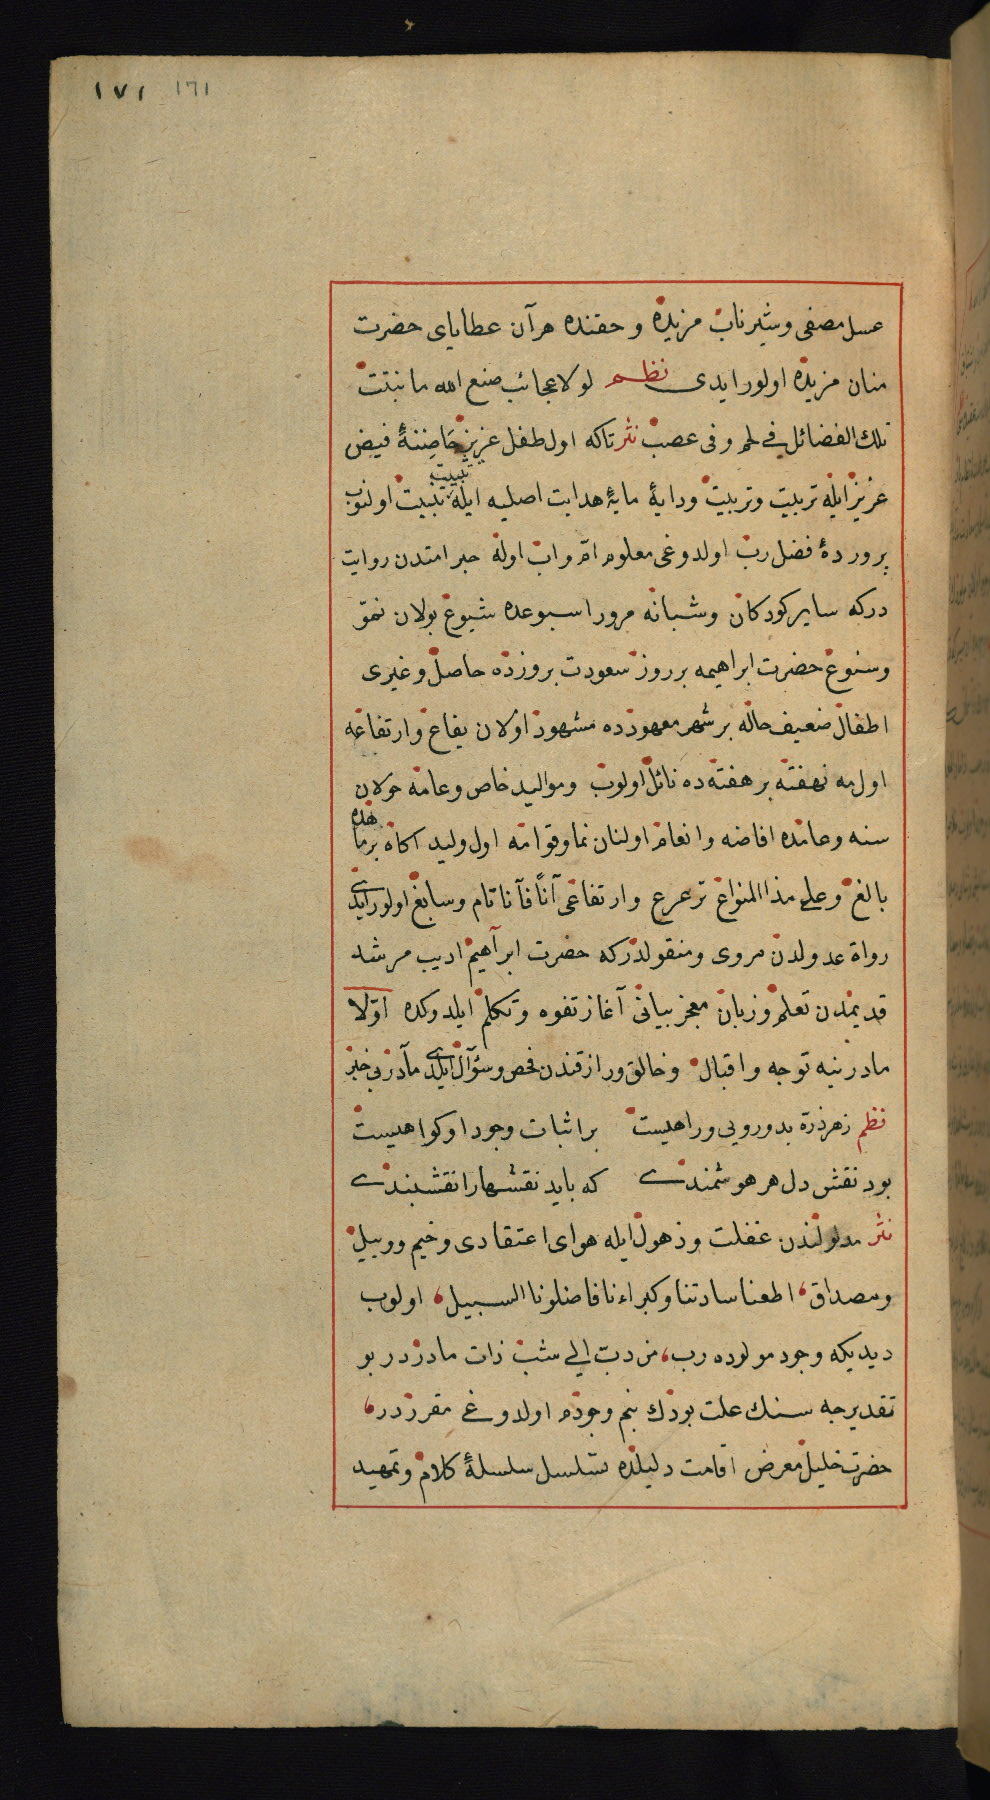 ١٧١ ١٦١
عسل مصفى وشير ناب مزيده و حقنده هر آن عطاياى حضرت
منان مزيده اولور ايدى نظم لولا عجائب صنع الله ما نبتت
تلك الفضائل فى لحم وفى عصب نثر تاكه اول طفل عزيز حاضنهٔ فيض
عزيز ايله تربيت وتربيت ودايهٔ مايهٔ هدايت اصليه ايله تبييت تبييت اولنوب
پروردهٔ فضل رب اولدوغى معلوم ام واب اوله حبر امتدن روايت
دركه ساير كودكان وشبانه مرور اسبوعده شيوع بولان نمو
وسنوع حضرت ابراهيمه بر روز سعودت بروزده حاصل وغيرى
اطفال ضعيف حاله بر شهر معهودده مشهود اولان يفاع وارتفاعه
اول مه نهفته بر هفته ده نائل اولوب ومواليد خاص وعامه حولان
سنه وعامده افاضه وانعام اولنان نما وقوامه اول وليد اكاه بر ماهده
بالغ وعلى هذا المنواع ترعرع وارتفاعى آناً فآنا تام وسابغ اولور ايدى
رواة عدولدن مروى ومنقولدركه حضرت ابراهيم اديب مرشد
قديمدن تعلم وزبان معجز بيانى آغاز تفوه وتكلم ايلدوكده اوّلا
مادرنيه توجه واقبال وخالق ورازقندن فحص وسؤال ايلدى مادر بى خبر
نظم زهر ذره بدو رويى وراهيست بر اثبات وجود او كواهيست
بود نقش دل هر هوشمندى كه بايد نقشها را نقشبندى
نثر مدلولندن غفلت وذهول ايله هواى اعتقادى وخيم ووبيل
ومصداق اطعنا سادتنا وكبراءنا فاضلونا السبيل اولوب
ديديكه وجود مولوده رب من دب الى شب ذات مادردر بو
تقديرجه سنك علت بودك بنم وجودم اولدوغى مقرردر
حضرت خليل معرض اقامت دليلده تسلسل سلسلهٔ كلام وتمهيد